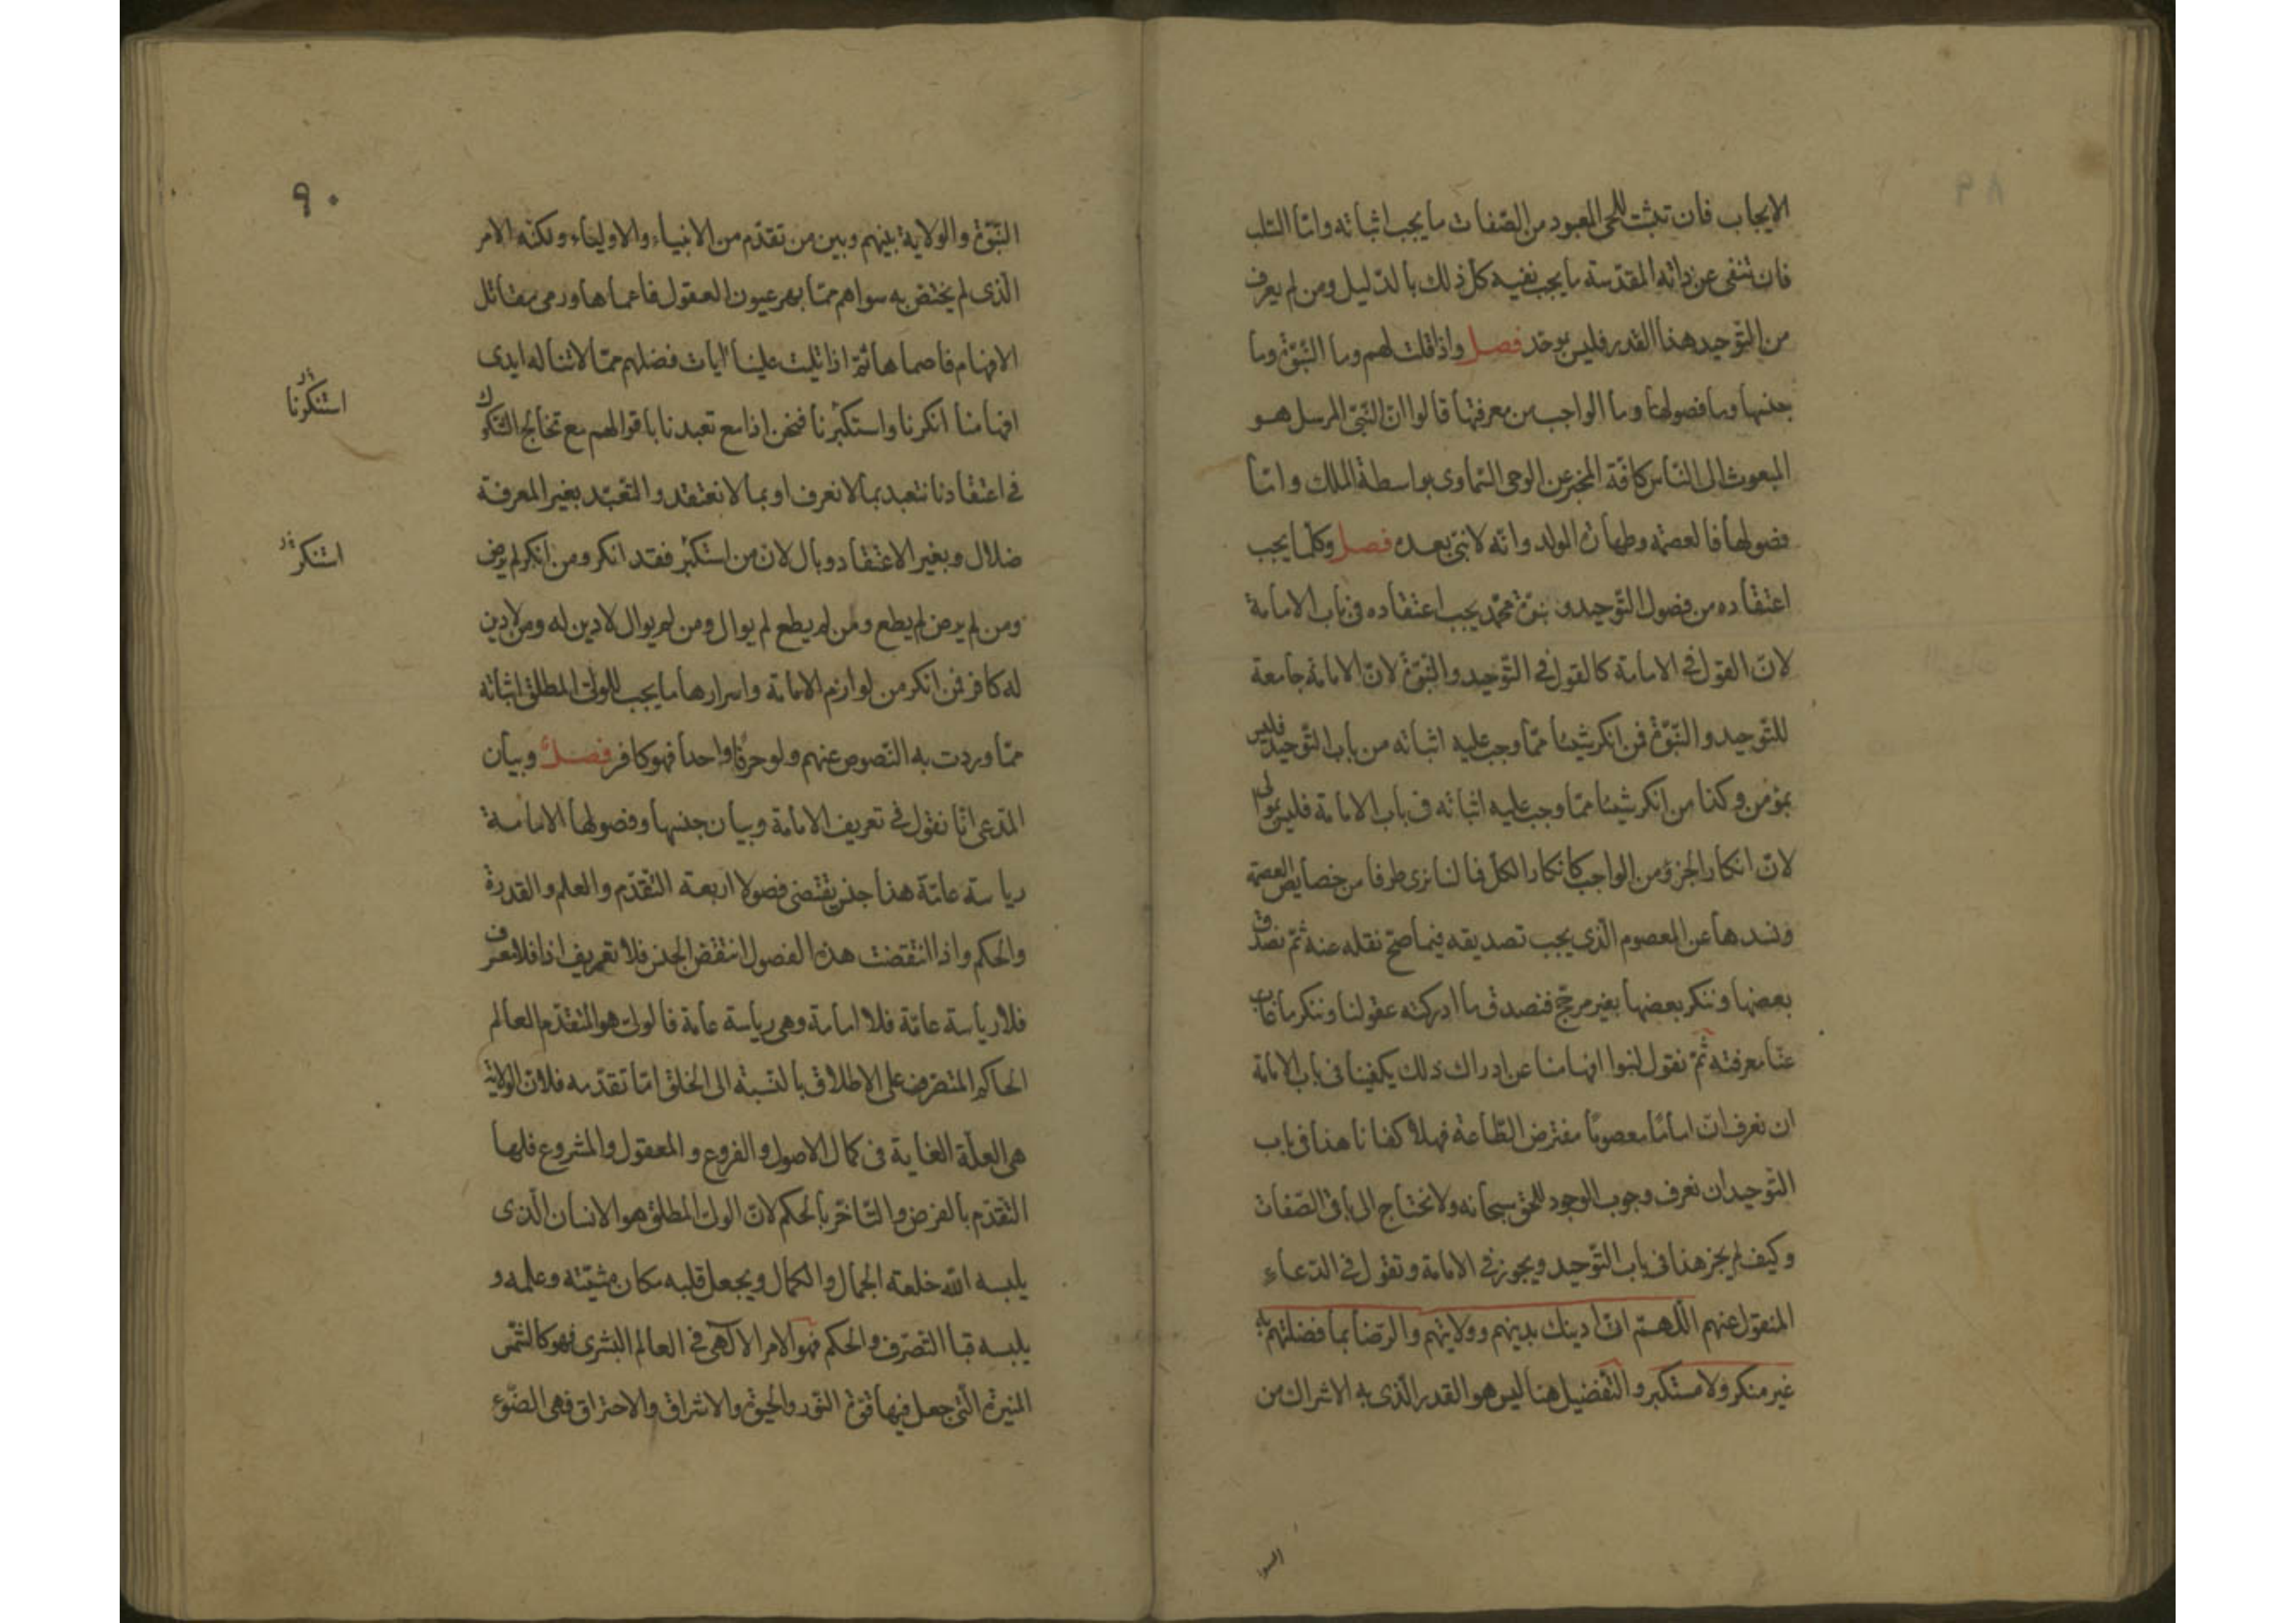 الايجاب فان تثبت للحى المعبود من الصفات ما يجب اثباته واما السلب
فان تنفى عن ذاته المقدسة ما يجب نفيه كل ذلك بالدليل ومن لم يعرف
من التوحيد هذا القدر فليس بموحد فصل واذا قلت لهم وما النبوة وما
جنسها وما فصولها وما الواجب من معرفتها قالوا ان النبى المرسل هو
المبعوث الى الناس كافة المخبر عن الوحى السماوى بواسطة الملك واما
فصولها فالعصمة وطهارة المولد وانه لا نبى بعده فصل وكلما يجب
اعتقاده من فصول التوحيد ونبوة محمد يجب اعتقاده فى باب الامامة
لان القول فى الامامة كالقول فى التوحيد والنبوة لان الامامة جامعة
للتوحيد والنبوة فمن انكر شيئا مما وجب عليه اثباته من باب التوحيد فليس
بمؤمن وكذا من انكر شيئا مما وجب عليه اثباته فى باب الامامة فليس بموال
لان انكار الجزؤ من الواجب كانكار الكل فما لنا نرى طرفا من خصايص العصمة
ونسدها عن المعصوم الذى يجب تصديقه فيما صح نقله عنه ثم نصدق
بعضها وننكر بعضها بغير مرجح فنصدق ما ادركته عقولنا وننكر ما غاب
عنا معرفته ثم نقول لنبوا افهامنا عن ادراك ذلك يكفينا فى باب الامامة
ان نعرف ان اماما معصوما مفترض الطاعة فهلا كفانا هذا فى باب
التوحيد ان نعرف وجوب الوجود للحق سبحانه ولا نحتاج الى باقى الصفات
وكيف لم يجز هذا فى باب التوحيد ويجوز فى الامامة وتقول فى الدعاء
المنقول عنهم اللهم انى ادينك بدينهم وولايتهم والرضا بما فضلتهم به
غير منكر ولا مستكبر والتفضيل هنا ليس هو القدر الذى به الاشراك من
٩٠
النبوة والولاية بينهم وبين من تقدم من الانبياء والاولياء ولكنه الامر
الذى لم يختص به سواهم مما بهر عيون العقول فاعماها ورمى مقاتل
الافهام فاصماها ثم اذا تليت علينا ايات فضلهم مما لا تناله ايدى
افهامنا انكرنا واستكبرنا فنحن اذا مع تعبدنا باقوالهم مع تخالج الشكوك
فى اعتقادنا نتعبد بما لا نعرف او بما لا نعتقد والتعبد بغير المعرفة
ضلال وبغير الاعتقاد وبال لان من استكبر فقد انكر ومن انكر لم يرض
ومن لم يرض لم يطع ومن لم يطع لم يوال ومن لم يوال لا دين له ومن لا دين
له كافر فمن انكر من لوازم الامامة واسرارها ما يجب للولى المطلق اثباته
مما وردت به النصوص عنهم ولو حرفا واحدا فهو كافر فصل وبيان
المدعى انا نقول فى تعريف الامامة وبيان جنسها وفصولها الامامة
رياسة عامة هذا جنس يقتضى فصولا اربعة التقدم والعلم والقدرة
والحكم واذا انتقضت هذه الفصول انتقض الجنس فلا تعريف اذا فلا معرف
فلا رياسة عامة فلا امامة وهى رياسة عامة فالولى هو المتقدم العالم
الحاكم المتصرف على الاطلاق بالنسبة الى الخلق اما تقدمه فلان الولاية
هى العلة الغاية فى كمال الاصول والفروع والمعقول والمشروع فلها
التقدم بالفرض والتاخر بالحكم لان الولى المطلق هو الانسان الذى
يلبسه الله خلعة الجمال والكمال ويجعل قلبه مكان مشيته وعلمه و
يلبسه قبا التصرف والحكم فهو الامر الالهى فى العالم البشرى فهو كالشمس
المنيرة التى جعل فيها قوة النور والحيوة والاشراق والاحتراق فهى الضوء
استنكرنا
استنكر